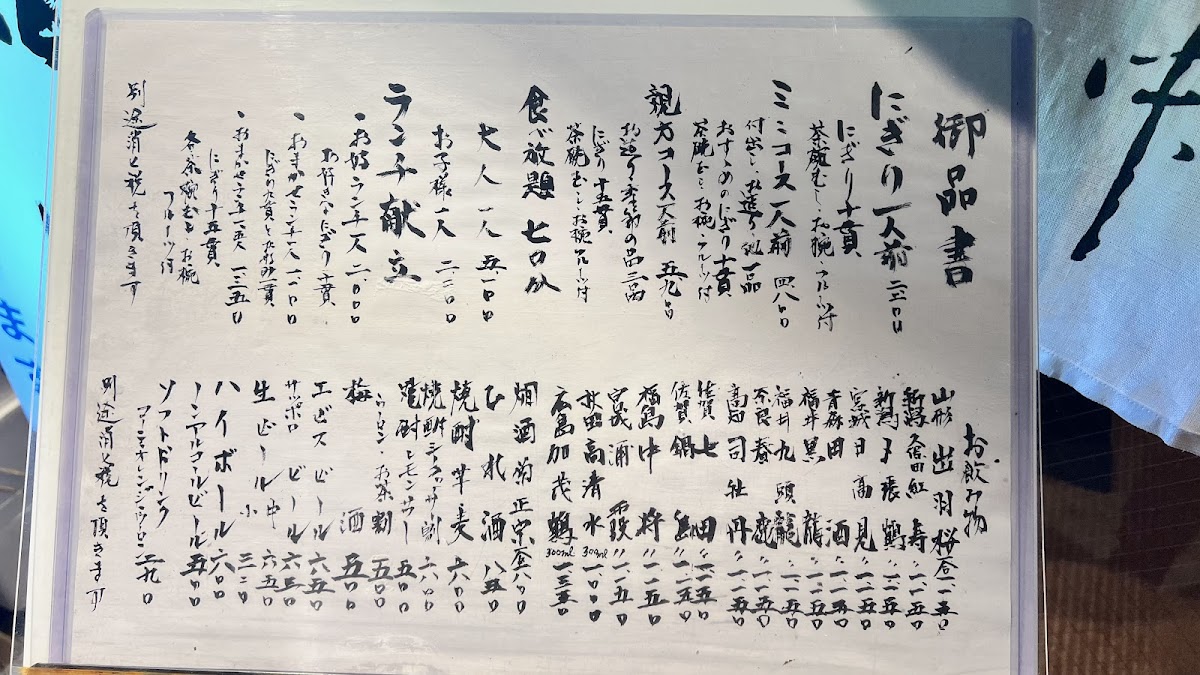 御品書
にぎり一人前 二二〇〇
にぎり十貫
茶碗むし、お椀、フルーツ付
ミニコース一人前 四八〇〇
付出し、お造り 一品
おすすめのにぎり十貫
茶碗むし、お椀、フルーツ付
親方コース一人前 五九〇〇
お造り 季節の品二品
にぎり十五貫
茶碗むし お椀 フルーツ付
食べ放題
大人一人 五一〇〇
お子様一人 二二〇〇
ランチ献立
・お好ランチ一人 二〇〇〇
お好きなにぎり十貫
・おまかせランチ一人
にぎり九貫と
・おまかせランチ
にぎり十五貫
各茶碗むし お椀
フルーツ付
別途消費税を頂きます
お飲み物
山形 出羽桜 一合 一一五〇
新潟 久保田 紅寿 〃 一一五〇
新潟 〆張鶴 〃 一一五〇
宮城 日高見 〃 一一五〇
青森 田酒 〃 一一五〇
福井 黒龍 〃 一一五〇
福井 九頭龍 〃 一一五〇
奈良 春鹿 〃 一一五〇
高知 司牡丹 〃 一一五〇
佐賀 七田 〃 一一五〇
佐賀 鍋島 〃 一一五〇
福島 中将 〃 一一五〇
宮城 浦霞 〃 一一五〇
秋田 高清水 300ml 一〇〇〇
広島 加茂鶴 300ml 一三五〇
燗酒 菊正宗 一合 八〇〇
ひれ酒 八五〇
焼酎 芋 麦 六〇〇
焼酎 シークワーサー割 六〇〇
焼酎 レモンサワー 五〇〇
ウーロン・お茶割 五〇〇
梅酒 五〇〇
エビスビール 六五〇
サッポロビール 六五〇
生ビール 中 六五〇
小 三二〇
ハイボール 六〇〇
ノンアルコールビール 五〇〇
ソフトドリンク
別途消費税を頂きます